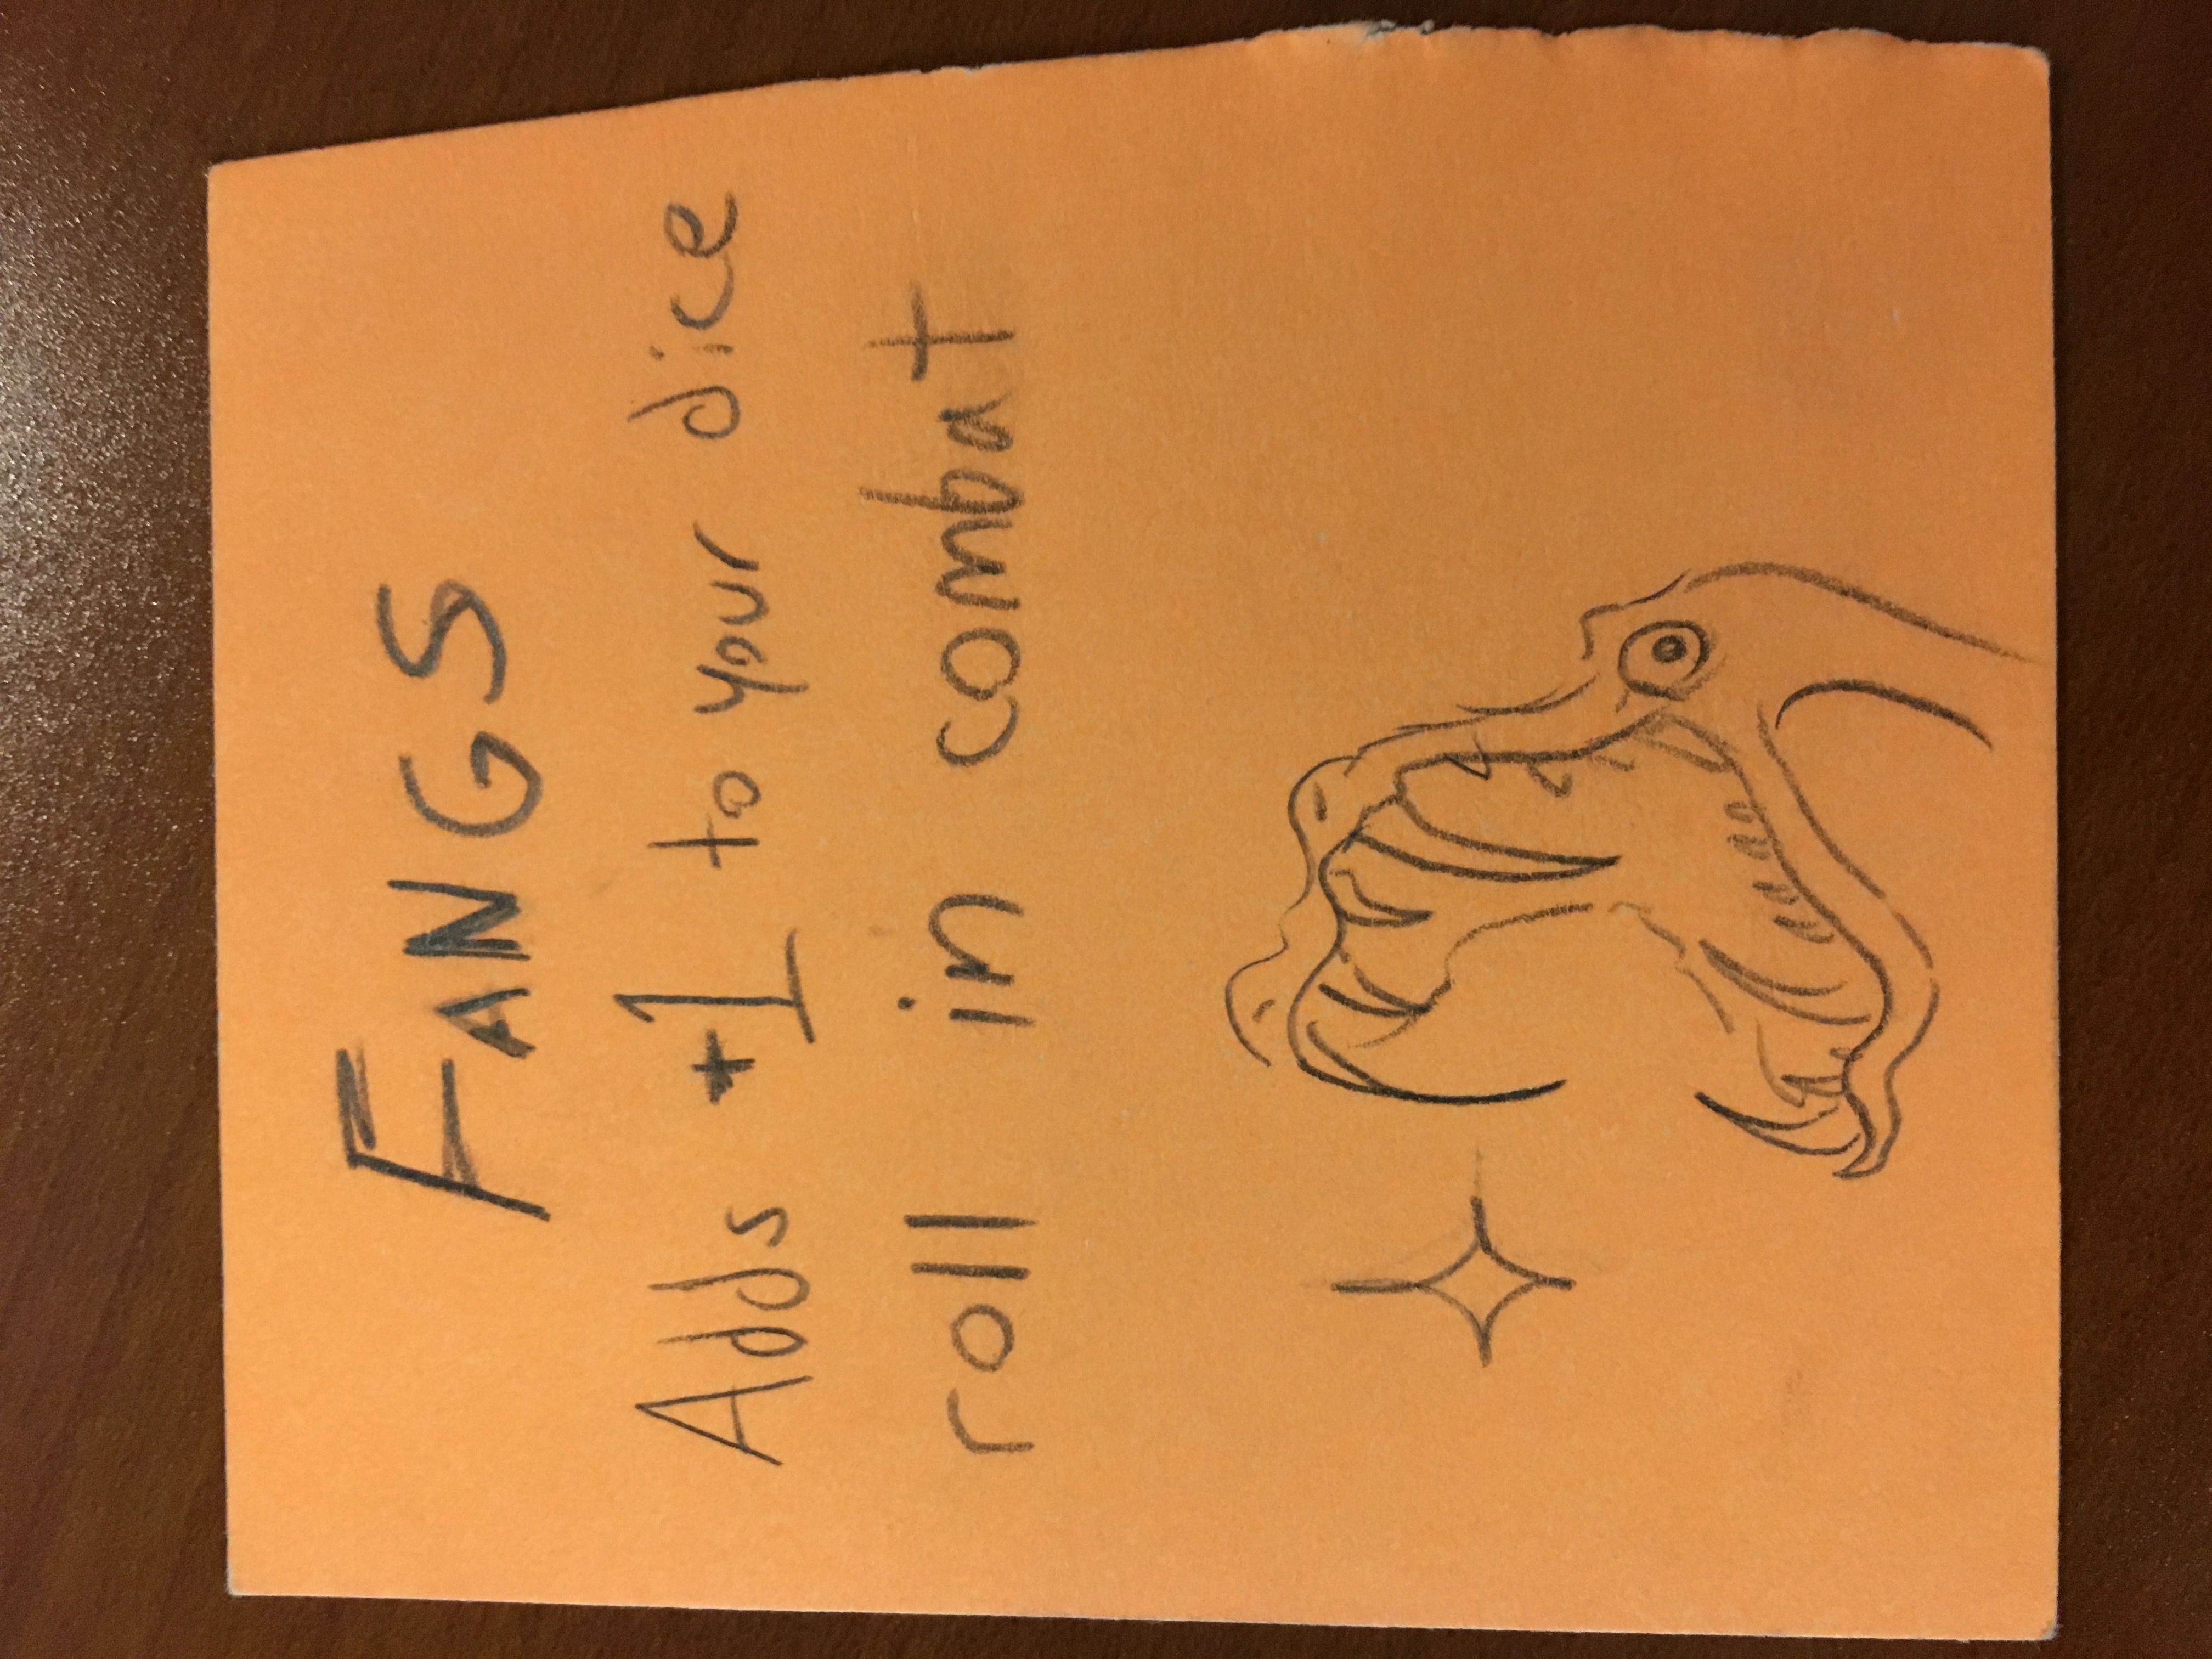 FANGS
Adds +1 to your dice
roll in combat